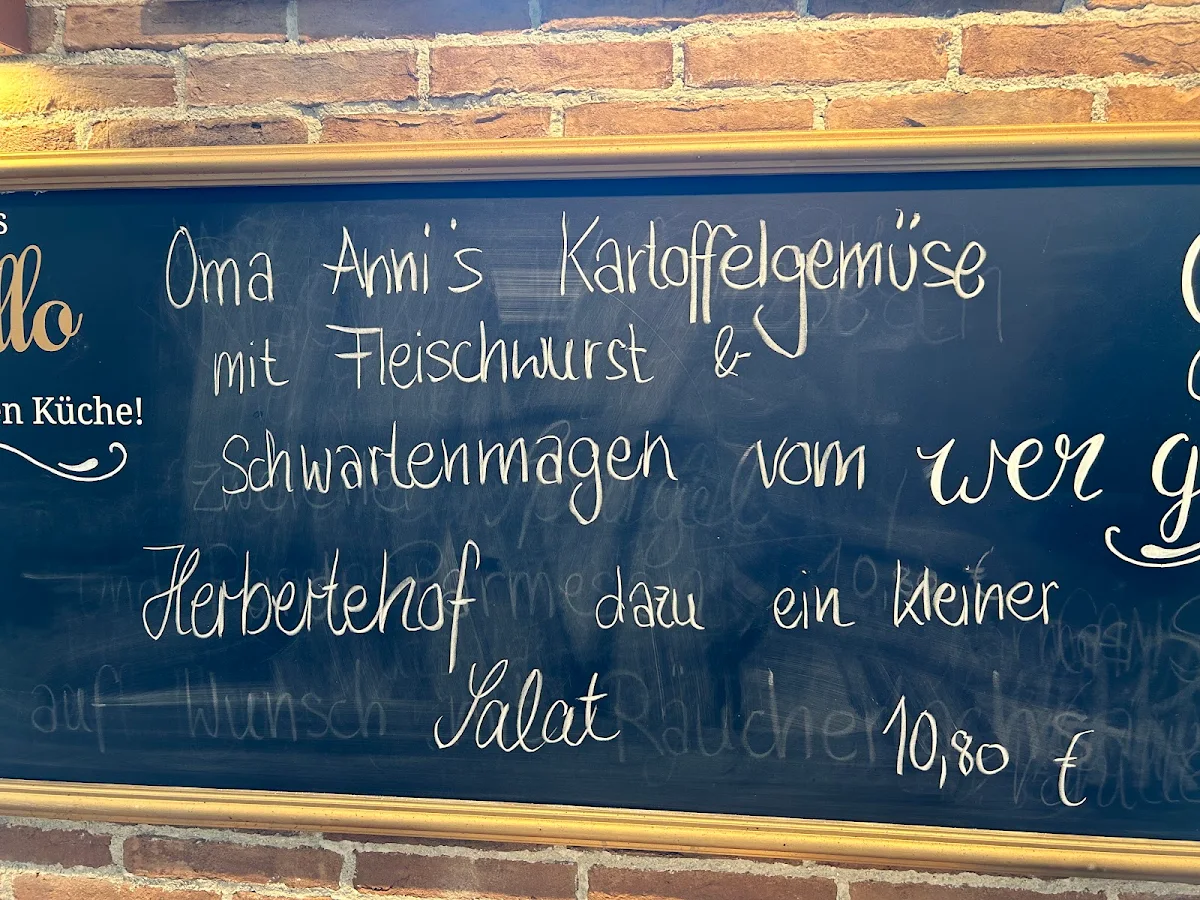 Oma Anni's Kartoffelgemüse
mit Fleischwurst &
Schwartenmagen vom
Herbertehof dazu ein kleiner
Salat 10,80 €
s
llo
en Küche!
wer g
auf Wunsch